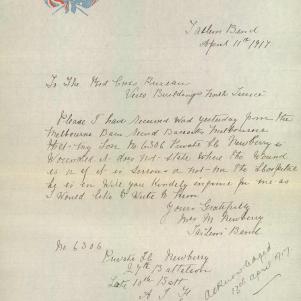 Tailem Bend
April 11th 1917
To The Red Cross Bureau
Vices Buildings North Terrace
Please I have received word yesterday from the
Melbourne Base Records Melbourne
that my Son No 6306 Private Newberry is
Wounded it does not state where the Wound
is or if it is Serious or not or the Hospital
he is in Will you Kindely enquire for me as
I Would like to Write to him
Yours Gratefully
Mrs M. Newberry
Tailem Bend
No 6306
Private Newberry
27th Battalion
Late 10th Batt
A I F
acknowledged
April 1917